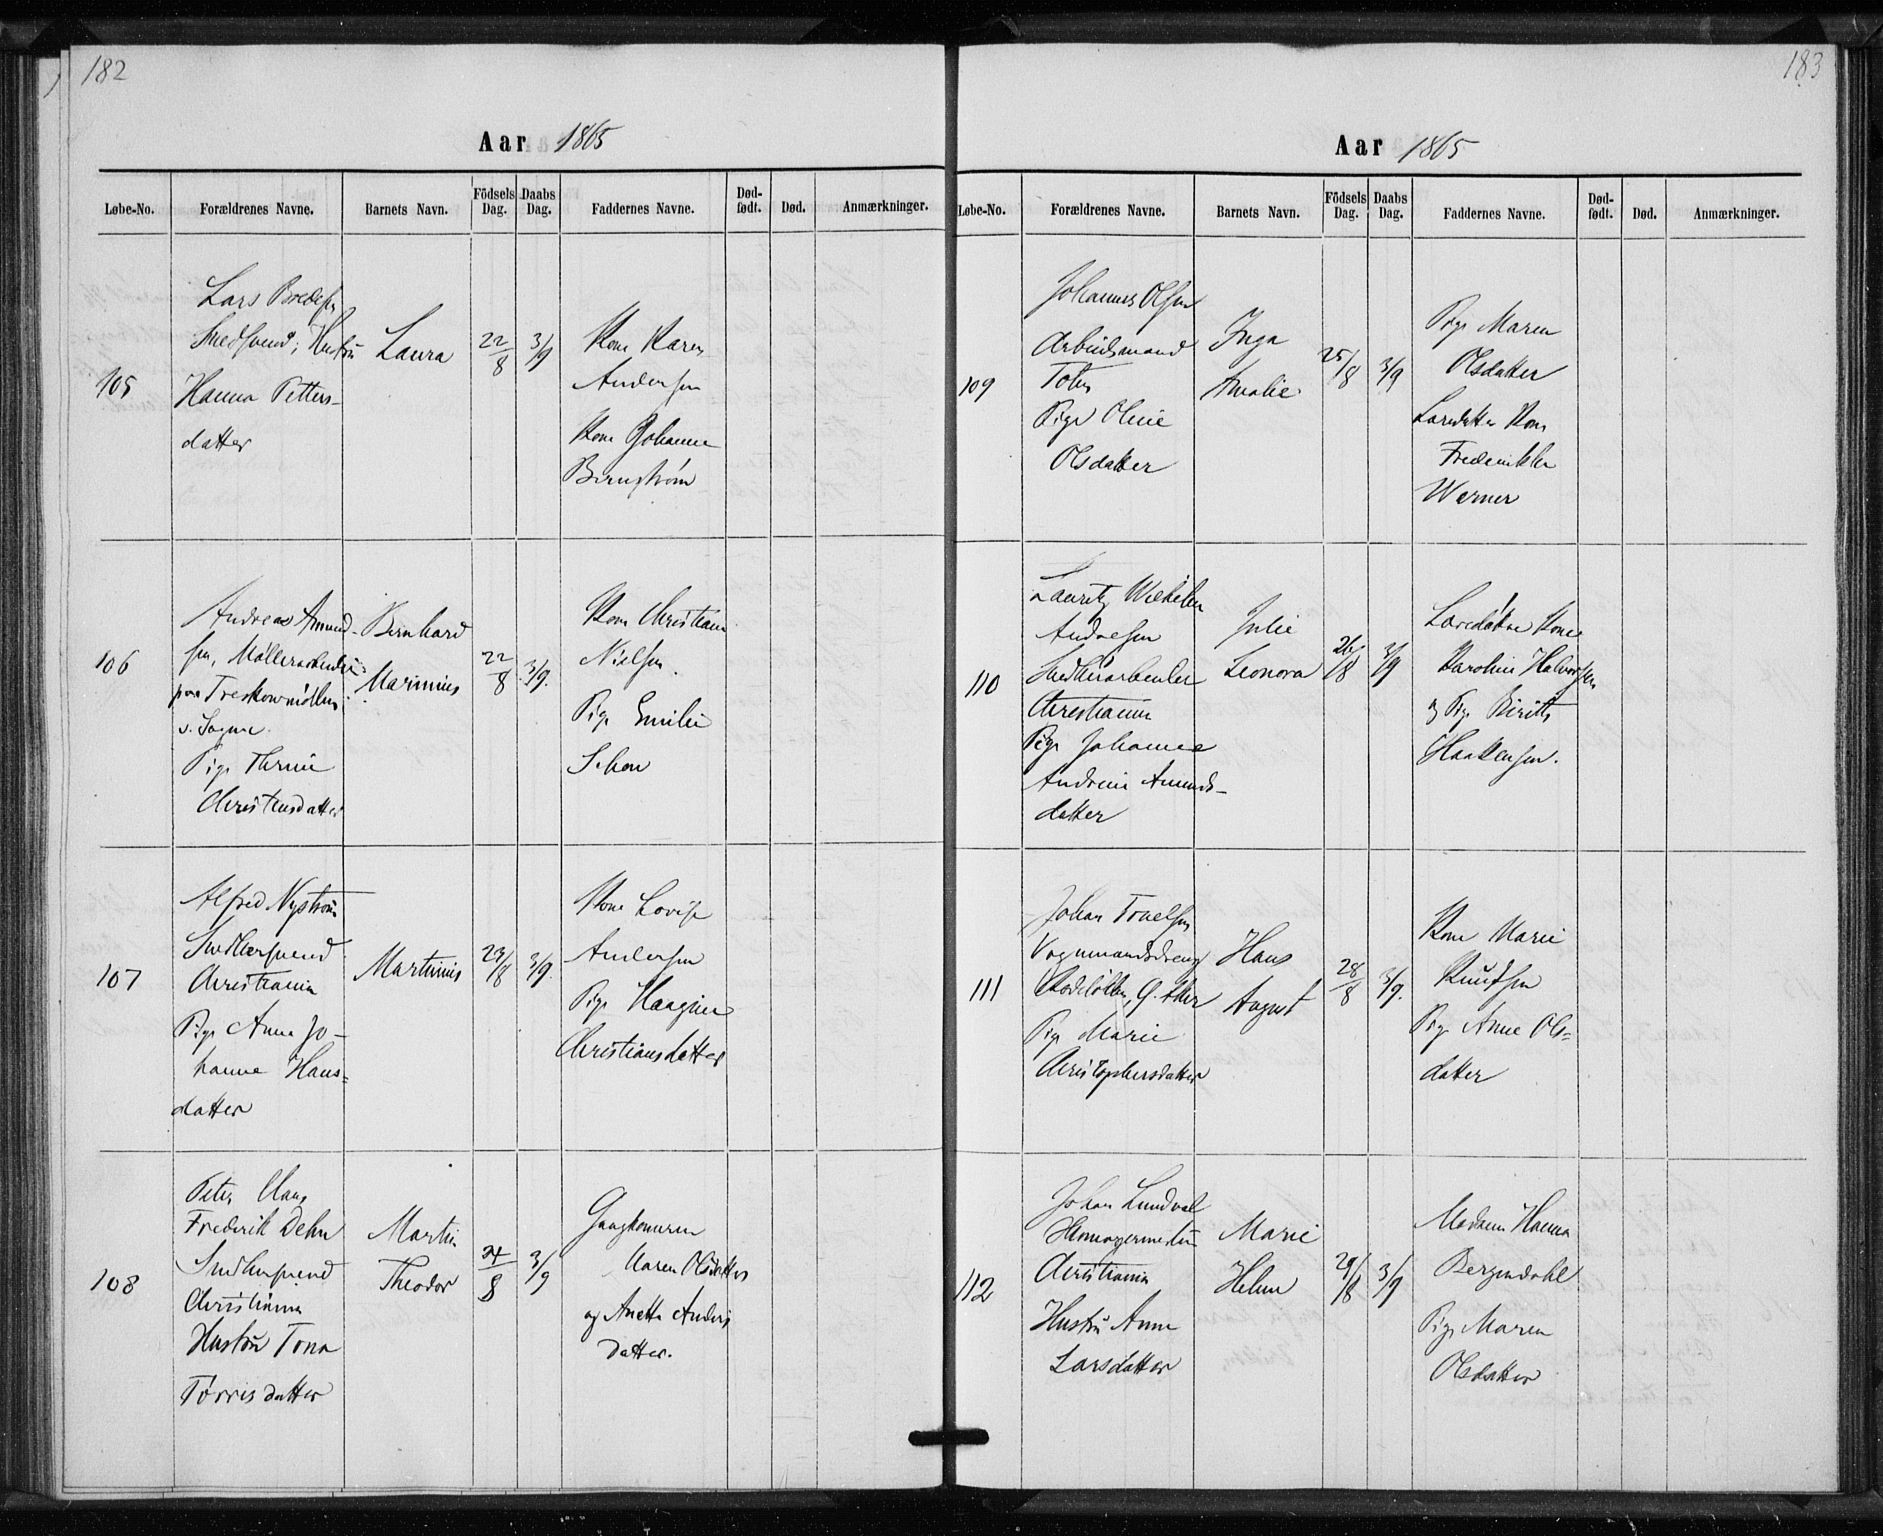 182
Aar 1865
Løbe-No. Forældrenes Navne. Barnets Navn. Födsels Dag. Daabs Dag. Faddernes Navne. Død-født. Død. Anmærkninger.
105
Lars Bredesen
Smedsvend, Hustru
Hanna Petters-
datter
Laura
22/8
3/9
Kone Karen
Andersen
Kone Johanne
106
Andreas Amund-
sen, Møllerarbeider
paa Treskowmøllen
v. Sogne
Pige Thrine
Christensdatter
Bernhard
Marinius
22/8
3/9.
Kone Christiane
Nielsen.
Pige Emilie
Schou
107
Alfred Nystrøm
Snedkersvend
Christiania
Pige Anna Jo-
hanne Hans-
datter
Martinius
23/8
3/9.
Kone Lovise
Andersen
Pige Haagine
Christiansdatter
108
Peter Claus
Frederik Dehn
Snedkersvend
Christiania
Hustru Tona
Tørrisdatter
Martin
Theodor
24/8
3/9
Gangkonerne
Maren Olsdatter
og Anette Anders
datter.
183
Aar 1865
Løbe-No. Forældrenes Navne. Barnets Navn. Födsels Dag. Daabs Dag. Faddernes Navne. Død-født. Død. Anmærkninger.
109
Johannes Olsen
Arbeidsmand
Toten
Pige Oline
Olsdatter
Inga
Amalie
25/8
3/9
Pige Maren
Olsdatter
Kone
Frederikke
Werner
110
Lauritz Wilhelm
Andresen
Snedkerarbeider
Christiania
Pige Johanne
Andrine Amunds-
datter
Julie
Leonora
26/8
3/9
Kone
Karoline Halvorsen
og Pige Biritte
Haakensen.
111
Johan Truelsen
Vognmandsdreng
G. Aker
Pige Marie
Christophersdatter
Hans
August
28/8
3/9.
Kone Marie
Knudsen
Pige Anne Ols-
datter
112
Johan Lundval
Christiania
Hustru Anne
Larsdatter
Marie
Helene
29/8
3/9
Madame Hanna
Bergendahl
Pige Maren
Olsdatter